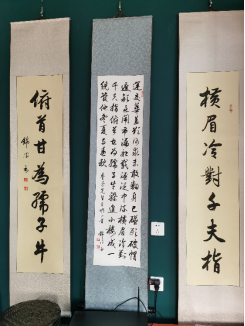 横眉冷對千夫指
運交華蓋欲何求未敢翻身已碰頭破帽
遮顏過鬧市漏船載酒泛中流横眉冷對
千夫指俯首甘為孺子牛躲進小樓成一
統管他冬夏與春秋
俯首甘為孺子牛